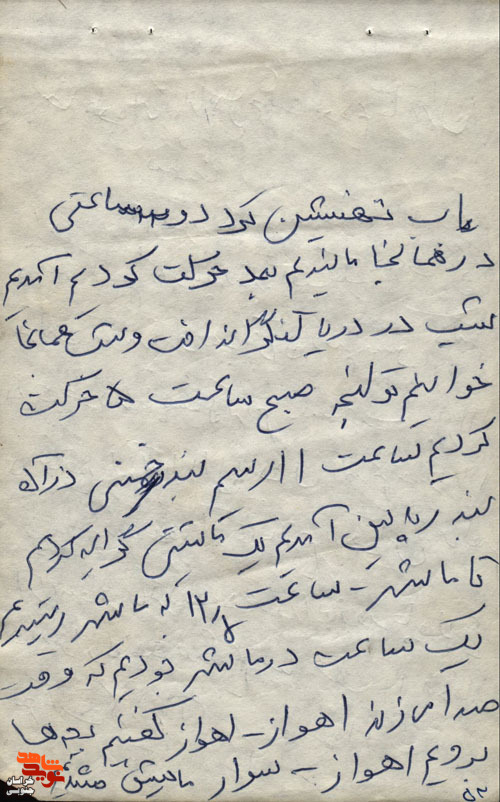 آب ته‌نشین کرد دو ساعتی
در همانجا ماندیم بعد حرکت کردیم آمدیم
شب در دریا لنگر انداخت و شب همانجا
خوابیدیم تو لنج صبح ساعت ۵ حرکت
کردیم ساعت ۱۱ رسیدیم بندر خمینی در آن
بندر پایین آمدیم یک تاکسی کرایه کردیم
تا ماهشهر - ساعت ۱۲ به ماهشهر رسیدیم
یک ساعت در ماهشهر بودیم که وقت
صدا می‌زند اهواز - اهواز گفتیم بچه‌ها
برویم اهواز - سوار ماشین شدیم
۵۲
نوید شاهد
خراسان جنوبی